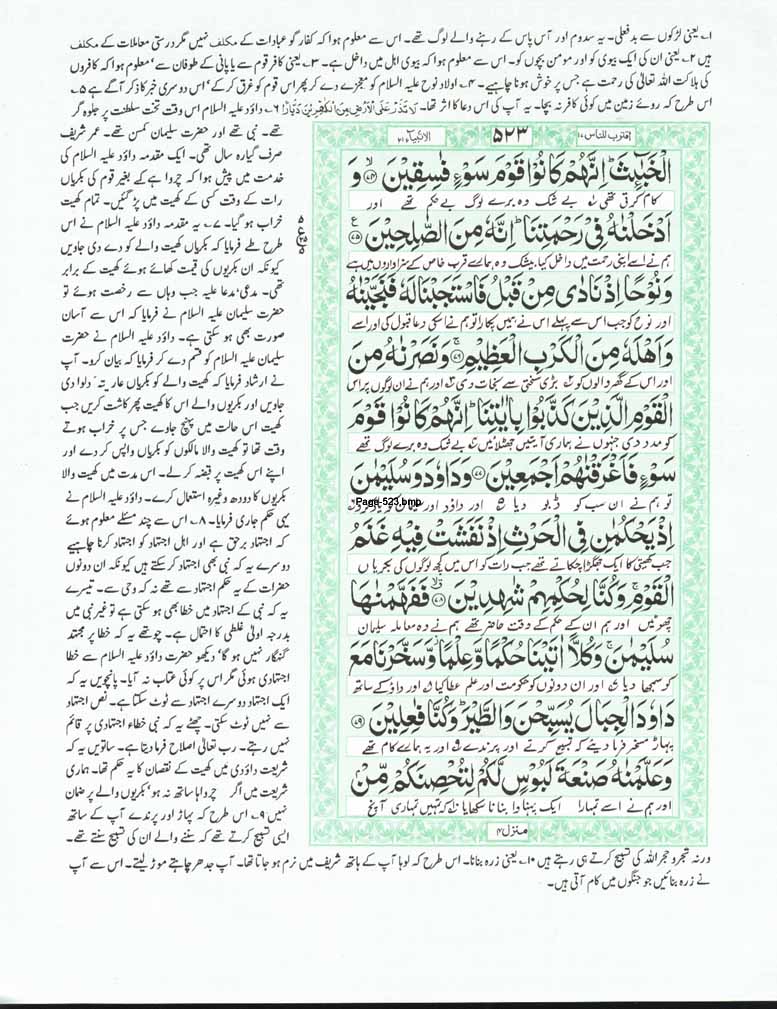 ۱؎ یعنی لڑکوں سے بدفعلی۔ یہ سدوم اور آس پاس کے رہنے والے لوگ تھے۔ اس سے معلوم ہوا کہ کفار گو عبادات کے مکلف نہیں مگر درستی معاملات کے مکلف
ہیں ۲؎ یعنی ان کی ایک بیوی کو اور مومن بچوں کو۔ اس سے معلوم ہوا کہ بیوی اہل میں داخل ہے۔ ۳؎ یعنی کافر قوم سے یا پانی کے طوفان سے' معلوم ہوا کہ کافروں
کی ہلاکت اللہ تعالیٰ کی رحمت ہے جس پر خوش ہونا چاہیے۔ ۴؎ اولاد نوح علیہ السلام کو معجزے دے کر پھر اس قوم کو غرق کر کے' اس دوسری خبر کا ذکر آگے ہے ۵؎
اس طرح کہ روئے زمین میں کوئی کافر نہ بچا۔ یہ آپ کی اس دعا کا اثر تھا۔ لَا تَذَرْ عَلَى الْاَرْضِ مِنَ الْكٰفِرِيْنَ دَيَّارًا ۶؎ داؤد علیہ السلام اس وقت تخت سلطنت پر جلوہ گر
تھے۔ نبی تھے اور حضرت سلیمان کمسن تھے۔ عمر شریف
صرف گیارہ سال تھی۔ ایک مقدمہ داؤد علیہ السلام کی
خدمت میں پیش ہوا کہ چرواہے کے بغیر قوم کی بکریاں
رات کے وقت کسی کے کھیت میں پڑ گئیں۔ تمام کھیت
خراب ہو گیا۔ ۷؎ یہ مقدمہ داؤد علیہ السلام نے اس
طرح طے فرمایا کہ بکریاں کھیت والے کو دے دی جاویں
کیونکہ ان بکریوں کی قیمت کھائے ہوئے کھیت کے برابر
تھی۔ مدعی' مدعا علیہ جب وہاں سے رخصت ہوئے تو
حضرت سلیمان علیہ السلام نے فرمایا کہ اس سے آسان
صورت بھی ہو سکتی ہے۔ داؤد علیہ السلام نے حضرت
سلیمان علیہ السلام کو قسم دے کر فرمایا کہ بیان کرو۔ آپ
نے ارشاد فرمایا کہ کھیت والے کو بکریاں عاریتہ دلوا دی
جاویں اور بکریوں والے اس کا کھیت پھر کاشت کریں جب
کھیت اس حالت میں پہنچ جاوے جس پر خراب ہوتے
وقت تھا تو کھیت والا مالکوں کو بکریاں واپس کر دے اور
اپنے اس کھیت پر قبضہ کر لے۔ اس مدت میں کھیت والا
بکریوں کا دودھ وغیرہ استعمال کرے۔ داؤد علیہ السلام نے
یہی حکم جاری فرمایا۔ ۸؎ اس سے چند مسئلے معلوم ہوئے
کہ اجتہاد برحق ہے اور اہل اجتہاد کو اجتہاد کرنا چاہیے
دوسرے یہ کہ نبی بھی اجتہاد کر سکتے ہیں کیونکہ ان دونوں
حضرات کے یہ حکم اجتہاد سے تھے نہ کہ وحی سے۔ تیسرے
یہ کہ نبی کے اجتہاد میں خطا بھی ہو سکتی ہے تو غیر نبی میں
بدرجہ اولیٰ غلطی کا احتمال ہے۔ چوتھے یہ کہ خطا پر مجتہد
گنہگار نہیں ہو گا' دیکھو حضرت داؤد علیہ السلام سے خطا
اجتہادی ہوئی مگر اس پر کوئی عتاب نہ آیا۔ پانچویں یہ کہ
ایک اجتہاد دوسرے اجتہاد سے ٹوٹ سکتا ہے۔ نص اجتہاد
سے نہیں ٹوٹ سکتی۔ چھٹے یہ کہ نبی خطاء اجتہادی پر قائم
نہیں رہتے۔ رب تعالیٰ اصلاح فرما دیتا ہے۔ ساتویں یہ کہ
شریعت داؤدی میں کھیت کے نقصان کا یہ حکم تھا۔ ہماری
شریعت میں اگر چرواہا ساتھ نہ ہو' بکریوں والے پر ضمان
نہیں ۹؎ اس طرح کہ پہاڑ اور پرندے آپ کے ساتھ
ایسی تسبیح کرتے تھے کہ سننے والے ان کی تسبیح سنتے تھے۔
اقترب للناس ۱۷ ۵۲۳ الانبیآء ۲۱
الْخَبٰٓئِثَ اِنَّهُمْ كَانُوْا قَوْمَ سَوْءٍ فٰسِقِيْنَ ﴿۷۴﴾ وَ
کام کرتی تھی بے شک وہ برے لوگ بے حکم تھے اور
اَدْخَلْنٰهُ فِيْ رَحْمَتِنَا اِنَّهٗ مِنَ الصّٰلِحِيْنَ ﴿۷۵﴾
ہم نے اسے اپنی رحمت میں داخل کیا بیشک وہ ہمارے قرب خاص کے سزاواروں میں ہے
وَنُوْحًا اِذْ نَادٰى مِنْ قَبْلُ فَاسْتَجَبْنَا لَهٗ فَنَجَّيْنٰهُ
اور نوح کو جب اس سے پہلے اس نے ہمیں پکارا تو ہم نے اسکی دعا قبول کی اور اسے
وَاَهْلَهٗ مِنَ الْكَرْبِ الْعَظِيْمِ ﴿۷۶﴾ وَنَصَرْنٰهُ مِنَ
اور اس کے گھر والوں کو بڑی سختی سے نجات دی اور ہم نے ان لوگوں پر اس
الْقَوْمِ الَّذِيْنَ كَذَّبُوْا بِاٰيٰتِنَا اِنَّهُمْ كَانُوْا قَوْمَ
کو مدد دی جنہوں نے ہماری آیتیں جھٹلائیں بے شک وہ برے لوگ تھے
سَوْءٍ فَاَغْرَقْنٰهُمْ اَجْمَعِيْنَ ﴿۷۷﴾ وَدَاوٗدَ وَسُلَيْمٰنَ
تو ہم نے ان سب کو ڈبو دیا اور داؤد اور
Page-523.bmp
اِذْ يَحْكُمٰنِ فِي الْحَرْثِ اِذْ نَفَشَتْ فِيْهِ غَنَمُ
جب کھیتی کا ایک جھگڑا چکاتے تھے جب رات کو اس میں کچھ لوگوں کی بکریاں
الْقَوْمِ وَكُنَّا لِحُكْمِهِمْ شٰهِدِيْنَ ﴿۷۸﴾ فَفَهَّمْنٰهَا
چھوٹیں اور ہم ان کے حکم کے وقت حاضر تھے ہم نے وہ معاملہ سلیمان
سُلَيْمٰنَ وَكُلًّا اٰتَيْنَا حُكْمًا وَّعِلْمًا وَّسَخَّرْنَا مَعَ
کو سمجھا دیا اور ان دونوں کو حکومت اور علم عطا کیا اور داؤد کے ساتھ
دَاوٗدَ الْجِبَالَ يُسَبِّحْنَ وَالطَّيْرَ وَكُنَّا فٰعِلِيْنَ ﴿۷۹﴾
پہاڑ مسخر فرما دیئے کہ تسبیح کرتے اور پرندے اور یہ ہمارے کام تھے
وَعَلَّمْنٰهُ صَنْعَةَ لَبُوْسٍ لَّكُمْ لِتُحْصِنَكُمْ مِّنْ
اور ہم نے اسے تمہارا ایک پہناوا بنانا سکھایا کہ تمہیں تمہاری آنچ
منزل ۴
ورنہ شجر و حجر اللہ کی تسبیح کرتے ہی رہتے ہیں ۱۰؎ یعنی زرہ بنانا۔ اس طرح کہ لوہا آپ کے ہاتھ شریف میں نرم ہو جاتا تھا۔ آپ جدھر چاہتے موڑ لیتے۔ اس سے آپ
نے زرہ بنائیں جو جنگوں میں کام آتی ہیں۔